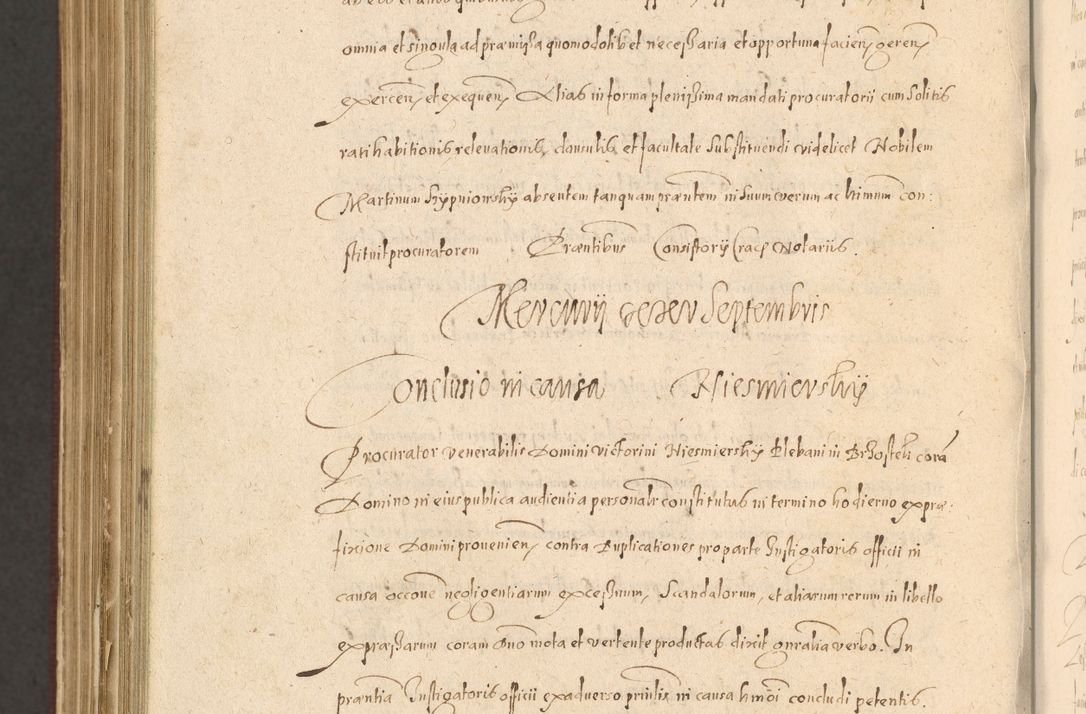 omnia et singula ad præmissa quomodolibet necessaria et opportuna facien geren
exercen et exequen Alias in forma plenissima mandati procuratorii cum solitis
ratihabitionis relevationis, clausulis et facultate substituendi videlicet Nobilem
Martinum absentem tanquam præntem in suum verum ac ltimum con:
stituit procuratorem Præntibus Consistorij Crac Notariis.
Mercurij Septembris
Conclusio in causa Niesmierskij
Procurator venerabilis Domini Victorini Niesmierskij Plebani in corā
Domino in eius publica audientia personalr constitutus in termino hodierno ex præ:
fixione Domini provenien contra Duplicationes pro parte Instigatoris officii in
causa occōne negligentiarum excessuum, Scandalorum, et aliarum rerum in libello
expressarum coram Dno mota et vertente productas dixit gnralia verbo. In
præntia Instigatoris officii ex adverso prinlis in causa hmōi concludi petentis.